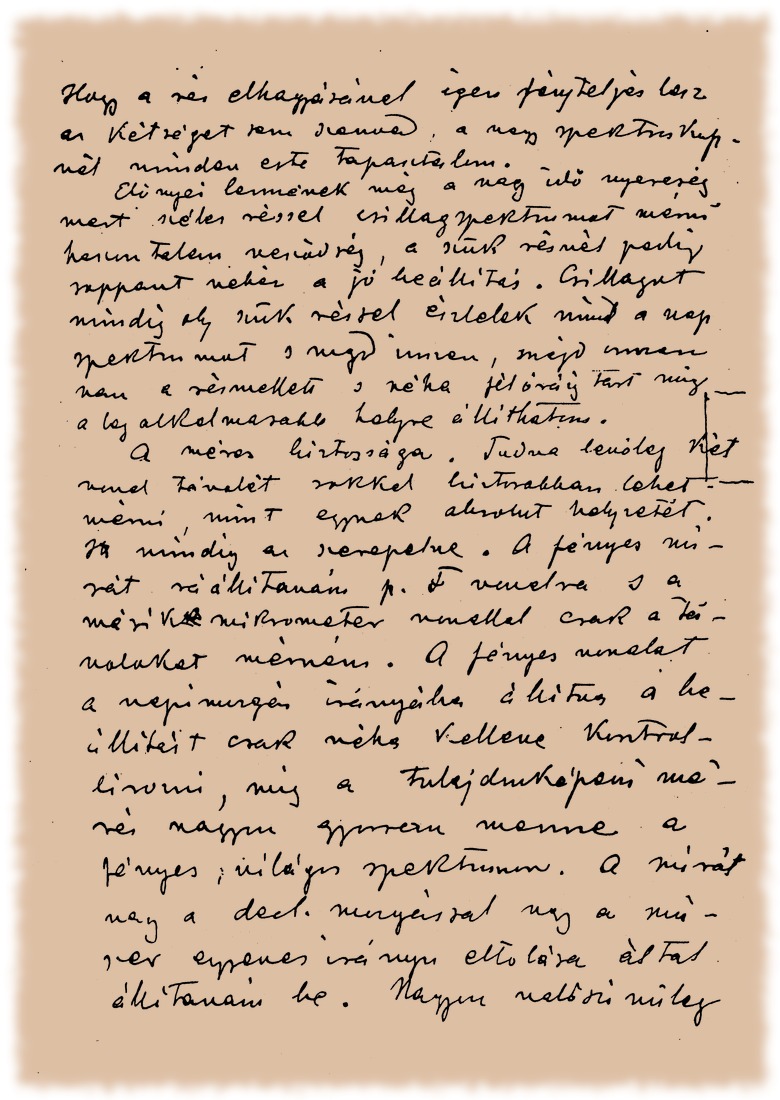 Hogy a rés elhagyásával igen fényteljes lesz
az kétséget sem szenved, a nagy spektroskop-
nál minden este tapasztalom.
Előnyei lennének még a nagy idő nyereség
mert széles réssel csillagspektrumot mérni
haszontalan vesződség, a szük résnél pedig
roppant nehéz a jó beállitás. Csillagot
mindig oly szük réssel észlelek mint a nap
spektrumot s majd innen, majd onnan
van a résmellett s néha félóráig tart mig
a legalkalmasabb helyre állithatom.
A mérés biztossága. Tudva levőleg két
vonal távolát sokkal biztosabban lehet
mérni, mint egynek absolut helyzetét.
Itt mindig az szerepelne. A fényes mi-
rát ráállitanám p. F vonalra s a
másik mikrometer vonallal csak a tá-
volokat mérném. A fényes vonalat
a napimozgás irányába állitva a be-
állitást csak néha kellene kontrol-
lirozni, mig a tulajdonképeni mé-
rés nagyon gyorsan menne a
fényes, világos spektrumon. A mirát
vagy a decl. mozgással vagy a mü-
szer egyenes irányu eltolása által
állitanám be. Nagyon valószinüleg